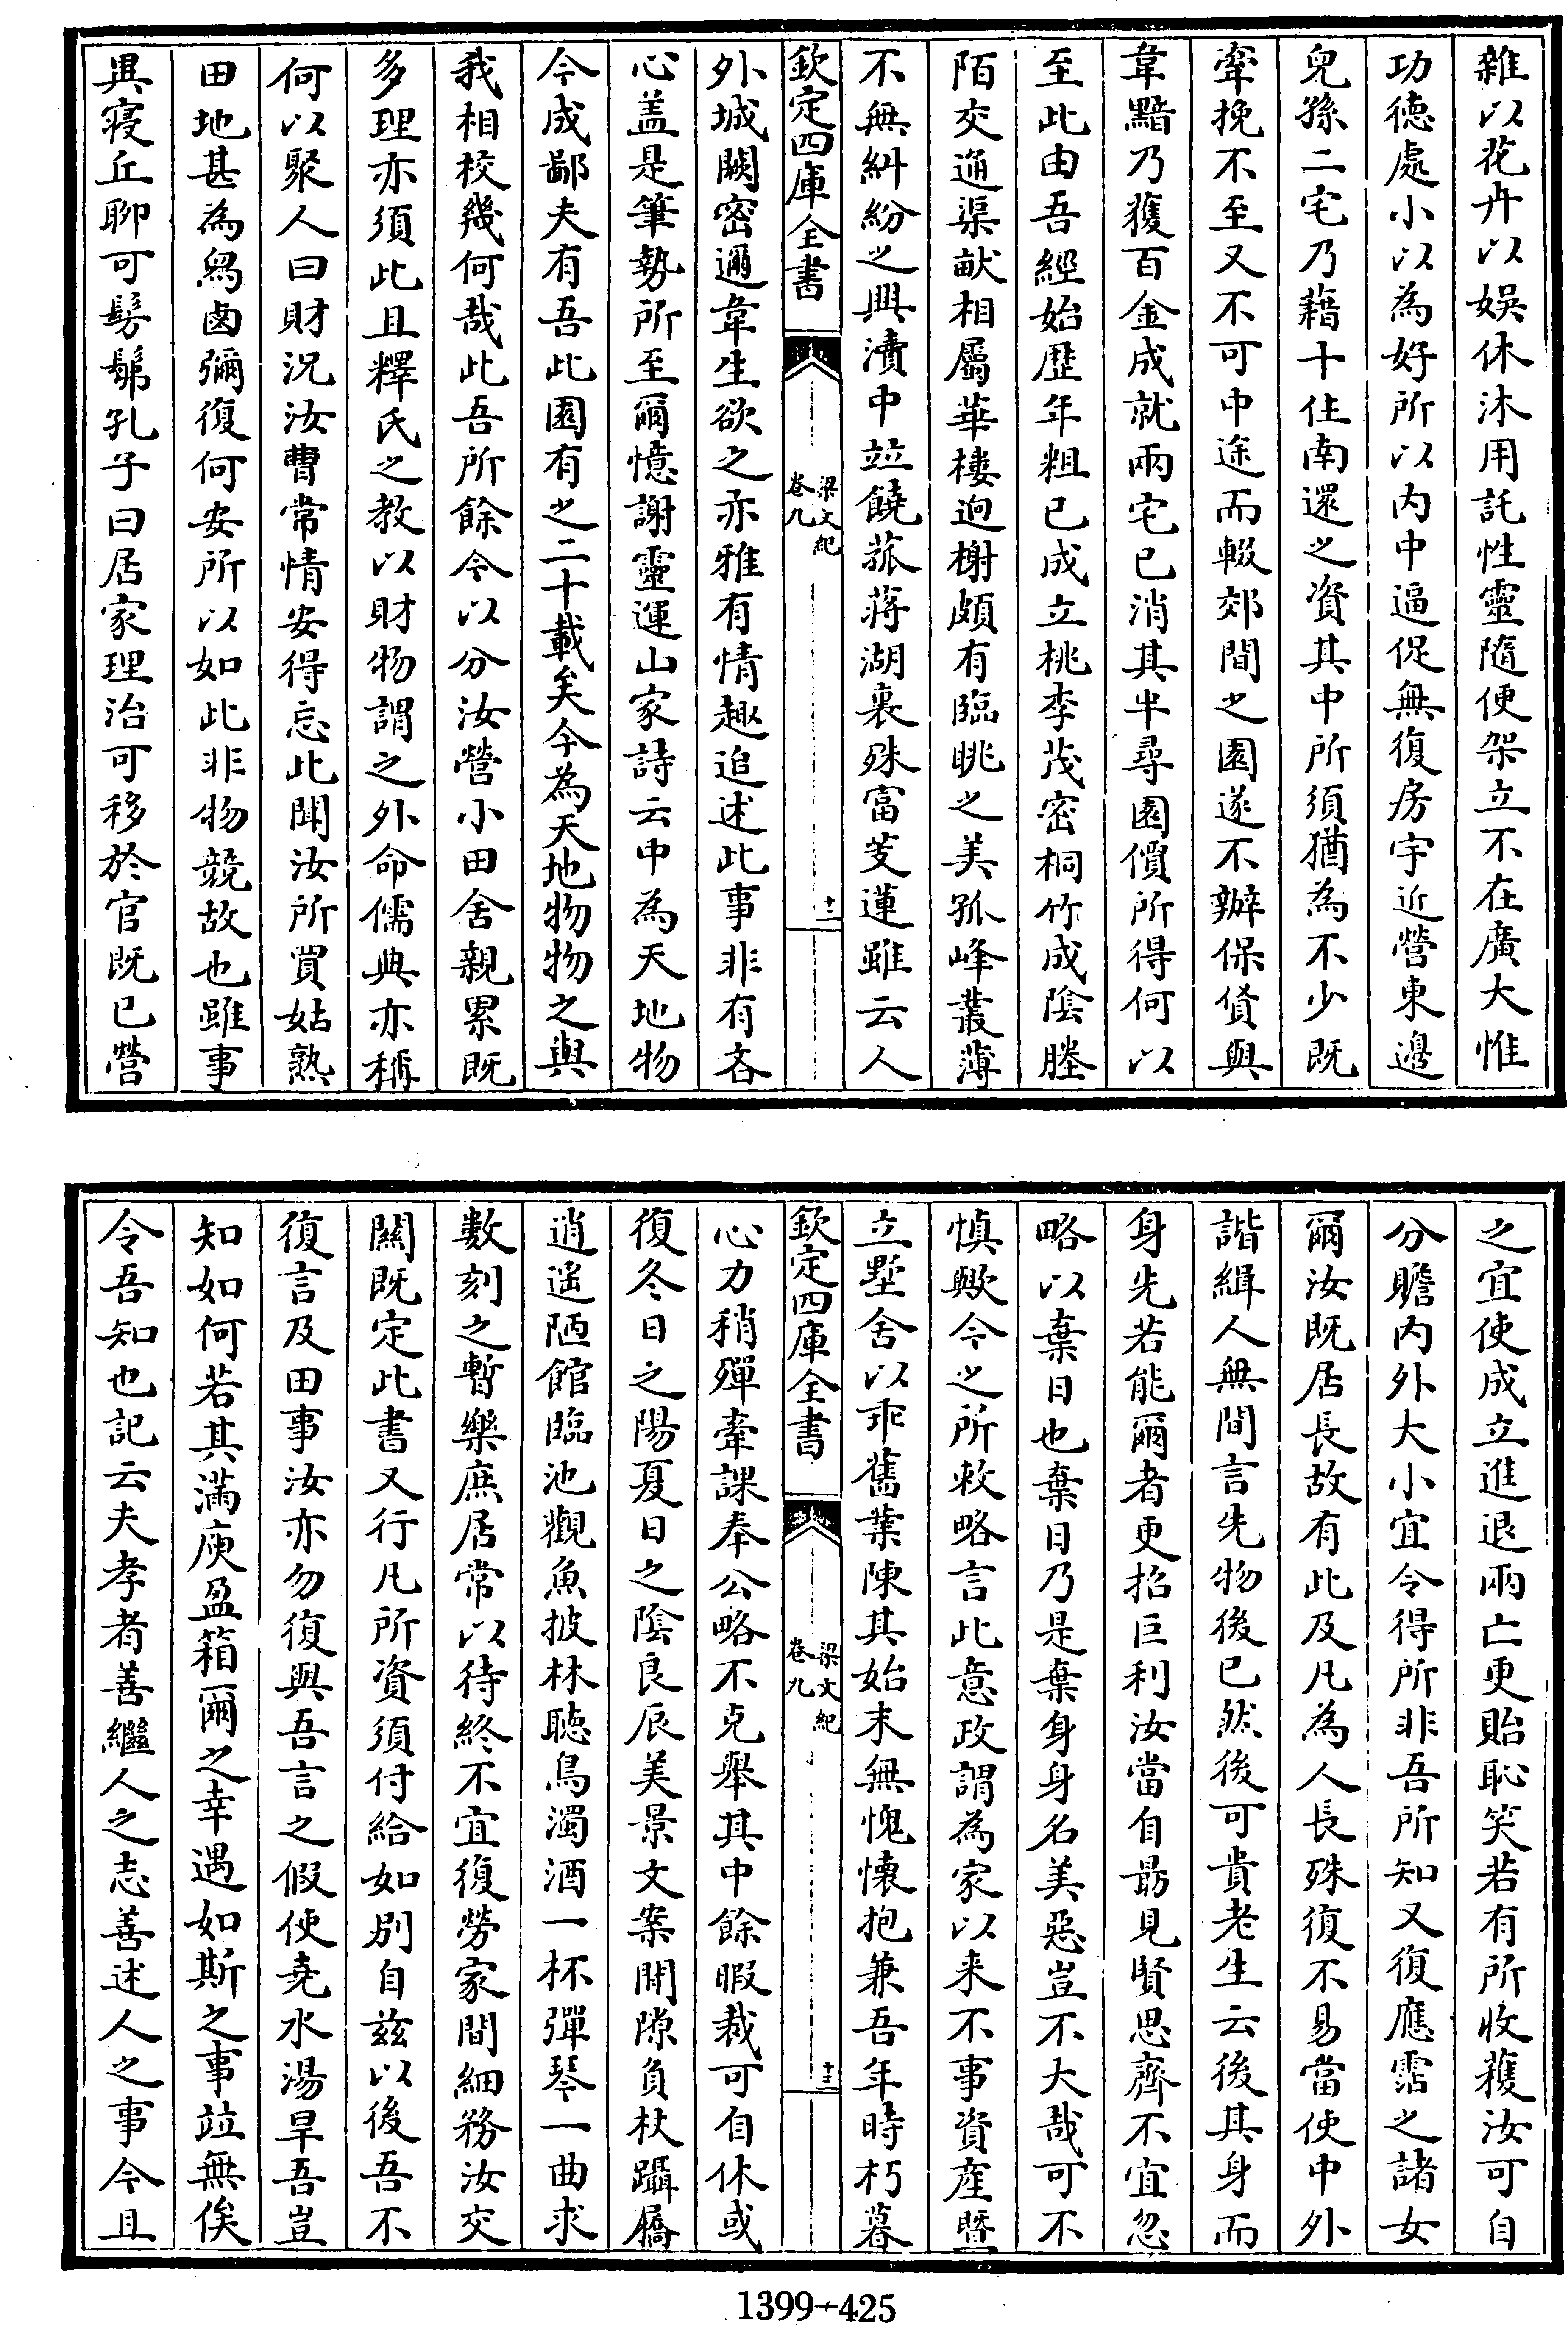 雜以花卉以娛休沐用託性靈隨便架立不在廣大惟
功德處小以為好所以内中逼促無復房宇近營東邊
兒孫二宅乃藉十住南還之資其中所須猶為不少既
牽挽不至又不可中途而輟郊間之園遂不辦保貨與
韋黯乃獲百金成就兩宅已消其半尋園價所得何以
至此由吾經始歴年粗已成立桃李茂密桐竹成陰塍
陌交通渠畎相屬華樓迥榭頗有臨眺之美孤峰叢薄
不無糾紛之興瀆中竝饒菰蔣湖裏殊富芰蓮雖云人
欽定四庫全書
梁文紀
卷九
十二
外城闕密邇韋生欲之亦雅有情趣追述此事非有吝
心盖是筆勢所至爾憶謝靈運山家詩云中為天地物
今成鄙夫有吾此園有之二十載矣今為天地物物之與
我相校幾何哉此吾所餘今以分汝營小田舍親累既
多理亦須此且釋氏之教以財物謂之外命儒典亦稱
何以聚人曰財況汝曹常情安得忘此聞汝所買姑熟
田地甚為舄鹵彌復何安所以如此非物競故也雖事
異寢丘聊可髣髴孔子曰居家理治可移於官既已營
之宜使成立進退兩亡更貽恥笑若有所收穫汝可自
分贍内外大小宜令得所非吾所知又復應霑之諸女
爾汝既居長故有此及凡為人長殊復不易當使中外
諧緝人無間言先物後已然後可貴老生云後其身而
身先若能爾者更招巨利汝當自勗見賢思齊不宜忽
略以棄日也棄日乃是棄身身名美惡豈不大哉可不
慎歟今之所敕略言此意政謂為家以来不事資産暨
立墅舍以乖舊業陳其始末無愧懐抱兼吾年時朽暮
欽定四庫全書
梁文紀
卷九
十三
心力稍殫牽課奉公略不克舉其中餘暇裁可自休或
復冬日之陽夏日之陰良辰美景文案閒隙負杖躡屩
逍遥陋館臨池觀魚披林聽鳥濁酒一杯彈琴一曲求
數刻之暫樂庶居常以待終不宜復勞家間細務汝交
關既定此書又行凡所資須付給如別自兹以後吾不
復言及田事汝亦勿復與吾言之假使堯水湯旱吾豈
知如何若其滿庾盈箱爾之幸遇如斯之事竝無俟
令吾知也記云夫孝者善繼人之志善述人之事今且
1399-425